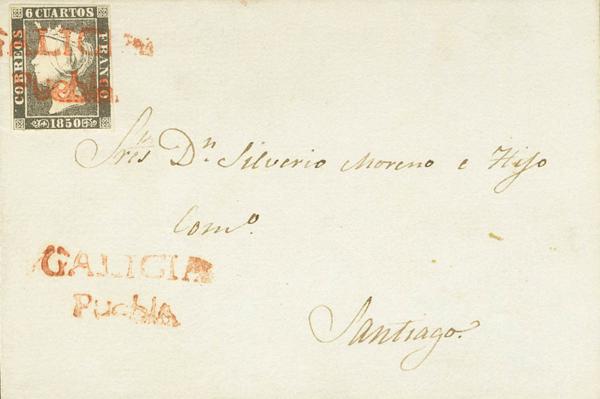 6 CUARTOS
CORREOS
FRANCO
1850
GALICIA
Puebla
Sres Dn. Silverio Moreno e Hijo
Como.
GALICIA
Puebla
Santiago.